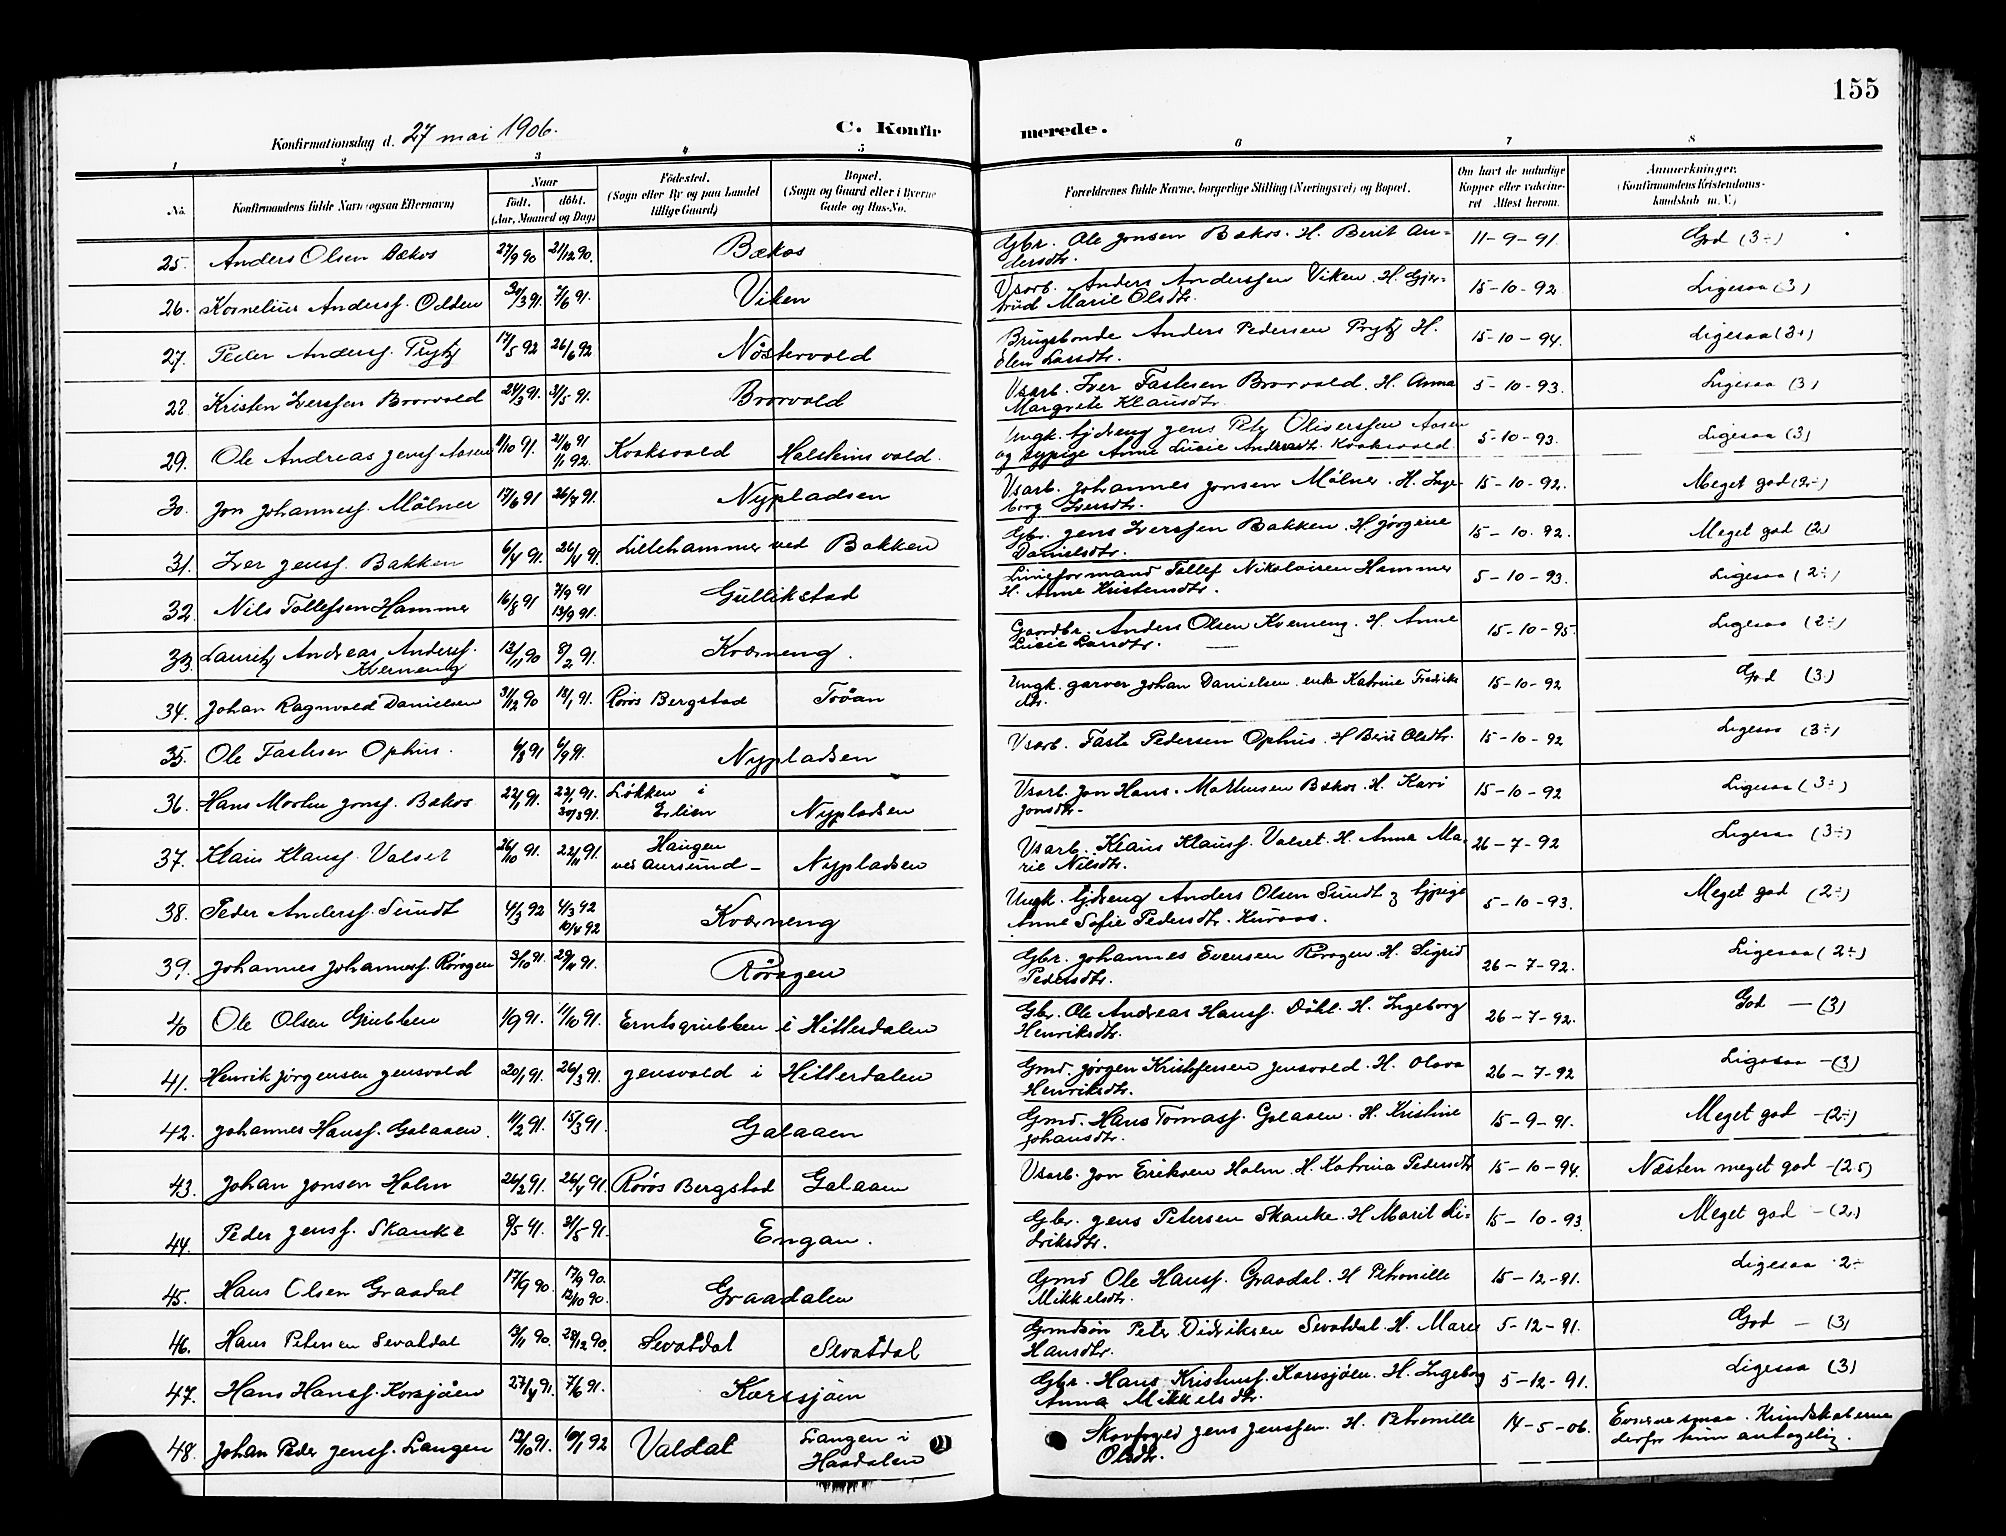 155
Konfirmationsdag d. 27 mai 1906.
C. Konfirmerede.
1 2 3 4 5 6 7 8
No.
Konfirmandens fulde Navn (ogsaa Efternavn)
Naar
født. døbt.
(Aar, Maaned og Dag)
Fødested.
(Sogn eller By og paa Landet
tillige Gaard)
Bopæl.
(Sogn og Gaard eller i Byerne
Gade og Hus-No.
Forældrenes fulde Navne, borgerlige Stilling (Næringsvei) og Bopæl.
Om havt de naturlige
Kopper eller vaccine-
ret Attest herom.
Anmerkninger.
(Konfirmandens Kristendoms-
kundskab m. V.)
25. Anders Olsen Bækos 27/9 90 21/12 90. Bækos Gbr. Ole Jonsen Bækos. H. Berit An-
dersdtr. 11-9-91. God (3÷)
26. Kornelius Anderss. Odden 7/6 91. Viken Vsarb. Anders Anderssen Viken. H. Gjer-
trud Marie Olsdtr. 15-10-92. Ligesaa (3)
27. Peder Anderss. Prytz 17/5 92 26/6 92 Nöstervold Brugsbonde Anders Pedersen Prytz H.
Elen Larsdtr. 15-10-94. Ligesaa (3+)
28. Kristen Iverssen Brorvold 24/3 91. 31/5 91. Brorvold Vsarb. Iver Fastesen Brorvold. H. Anna
Margrete Klausdtr. 5-10-93. Ligesaa (3)
29. Ole Andreas Jenss. Aasen 11/10 91. 21/10 91
1/1 92. Kroksvold Halsteinsvold. Ungk. tjdreng Jens Peter Oliverssen Aasen
og typige Anne Lucie Andersdtr. Kroksvold. 5-10-93. Ligesaa (3)
30. Jon Johanness. Mölner 17/6 91 26/7 91. Nypladsen Vsarb. Johannes Jonsen Mölner. H. Inge-
borg Iversdtr. 15-10-92. Meget god (2÷)
31. Iver Jenss. Bakken 6/4 91. 26/4 91. Lillehammer ved Bakken Gbr. Jens Iverssen Bakken. H. Jörgine
Danielsdtr. 15-10-92. Meget god (2)
32. Nils Tollefsen Hammer 16/8 91 7/9 91
13/9 91. Gullikstad Linieformand Tollef Nikolaisen Hammer
H. Anne Kristensdtr. 5-10-93. Ligesaa (2÷)
33. Lauritz Andreas Anderss.
Kverneng 13/11 90 8/2 91. Kværneng. Gaardbr. Anders Olsen Kverneng. H. Anne
Lucie Larsdtr. 15-10-95. Ligesaa (2÷)
34. Johan Ragnvald Danielsen 31/12 90 18/1 91. Röros Bergstad Tröan Ungk. garver Johan Danielsen. enke Katrine Fredriks
dtr. 15-10-92 God (3)
35. Ole Fastesen Ophus. 6/8 91 6/9 91. Nypladsen Vsarb. Faste Pedersen Ophus. H Berit Olsdtr. 15-10-92 Ligesaa (3÷)
36. Hans Morten Jonss. Bækos 22/1 91. 22/1 91.
30/3 91. Løkken i
Erlien Nypladsen Vsarb. Jon Hans. Mortensen Bækos. H. Kari
Jonsdtr. 15-10-92 Ligesaa (3÷)
37. Klaus Klauss. Valset 26/10 91. 22/11 91. Haugen
ved Aursund – Nypladsen Vsarb. Klaus Klauss. Valset. H. Anne Ma-
rie Nilsdtr. 26-7-92 Ligesaa (3÷)
38. Peder Anderss. Sundt 4/3 92 4/3 92
10/4 92 Kværneng Ungk. tjdreng Anders Olsen Sundt og tjpige
Anne Sofie Pedersdtr. Kuraas. 5-10-93. Meget god (2÷)
39. Johannes Johanness. Rörogen 3/10 91. 29/11 91. Rörogen Gbr. Johannes Evensen Rörogen. H. Sigrid
Pedersdtr. 26-7-92. Ligesaa (2÷)
40 Ole Olsen Grubben 1/9 91. 11/10 91. Erntsgrubben i Hitterdalen Gbr. Ole Andreas Hanss. Döhl. H. Ingeborg
Henriksdtr. 26-7-92. God – (3)
41. Henrik Jörgensen Jensvold 20/1 91. 26/3 91. Jensvold i Hitterdalen Gmd. Jörgen Kristofersen Jensvold. H. Olava
Henriksdtr. 26-7-92 Ligesaa – (3)
42. Johannes Hanss. Galaaen. 11/2 91. 15/3 91. Galaaen Gmd. Hans Tomass. Galaaen. H. Kristine
Johansdtr. 15-9-91. Meget god – (2÷)
43. Johan Jonsen Holm 26/2 91. 26/4 91. Röros Bergstad Galaaen Vsarb. Jon Eriksen Holm. H. Katrina Pedersdtr 15-10-94. Næsten meget god – (2.5)
44. Peder Jenss. Skanke 8/5 91. 31/5 91. Engan. Gbr. Jens Petersen Skanke. H Marit Di-
driksdtr. 15-10-93. Meget god – (2)
45. Hans Olsen Graadal 17/9 90. 17/9 90.
12/10 90. Graadalen Gmd Ole Hanss. Graadal. H Petronille
Mikkelsdtr. 15-12-91. Ligesaa 2÷
46. Hans Petersen Sevatdal 13/11 90. 28/12 90. Sevatdal Sevatdal Gmdsön Peter Didriksen Sevatdal. H. Maren
Hansdtr. 5-12-91. God – (3)
47. Hans Hanss. Korssjöen 27/4 91. 7/6 91. Korssjöen Gbr. Hans Kristens. Korssjöen. H. Ingeborg
Anna Mikkelsdtr. 5-12-91. Ligesaa (3)
48. Johan Peder Jenss. Langen 12/10 91. 6/1 92 Valdal Langen i
Haadalen Skovfoged Jens Jenssen. H. Petronille
Olsdtr. 14-5-06. Evnerne smaa. Kundskaberne
derfor kun antagelig.